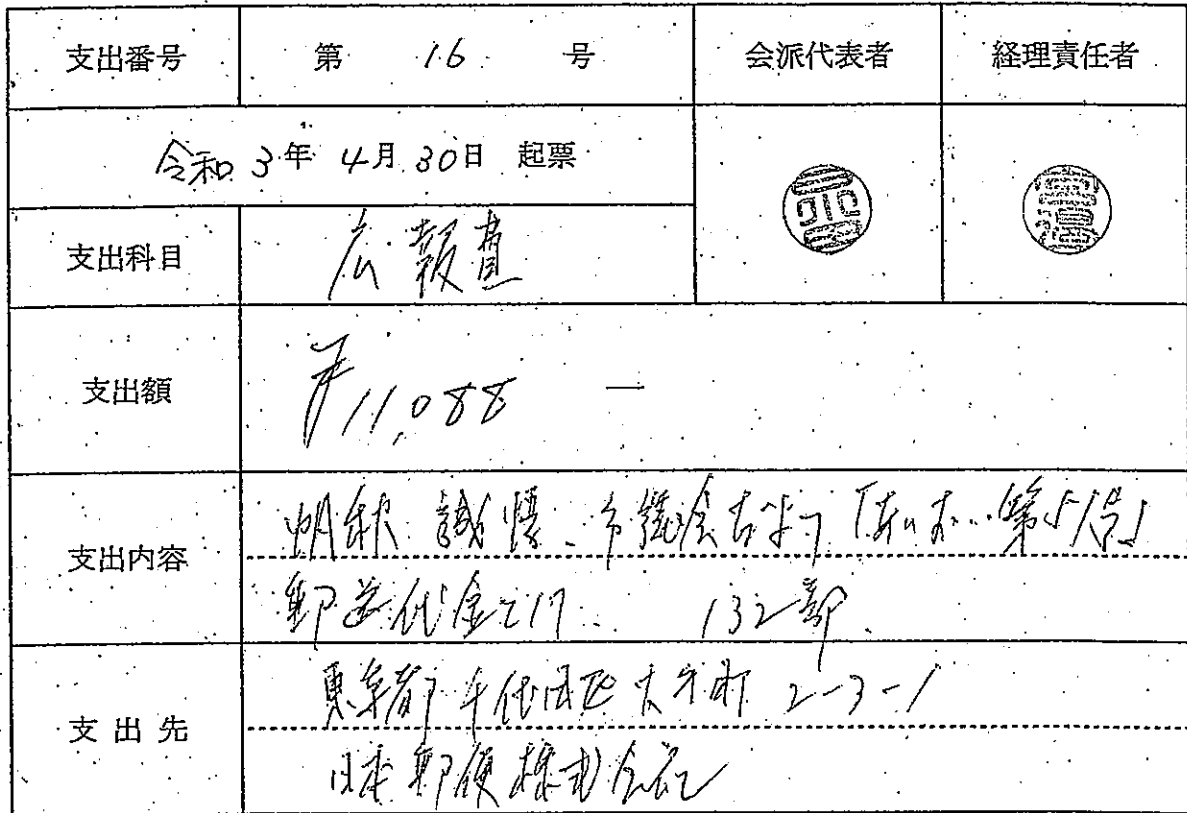 支出番号 第 16 号 会派代表者 経理責任者
令和 3年 4月 30日 起票
支出科目 広報費
支出額 ¥11,088 ―
支出内容 市議会だより 第51号」
郵送代金として 132部
支出先 東京都千代田区大手町 2-3-1
日本郵便株式会社